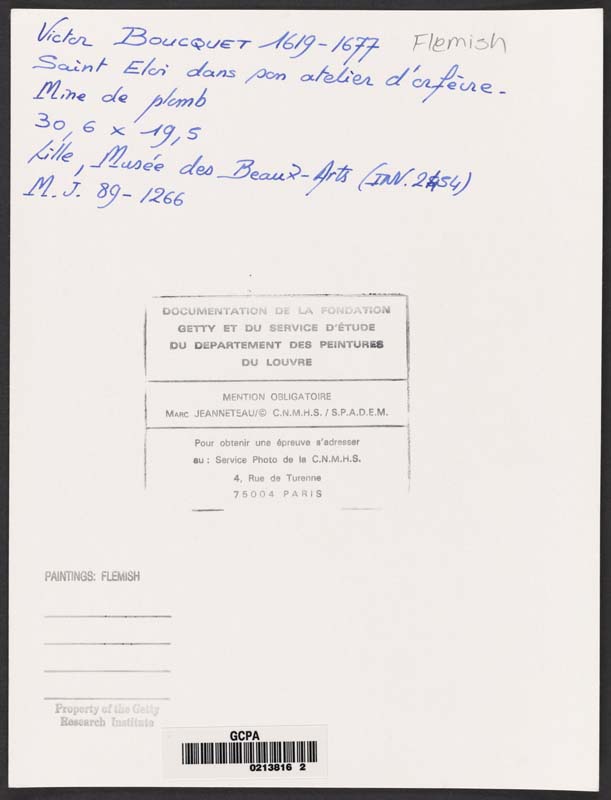 Victor BOUCQUET 1619-1677 Flemish
Saint Eloi dans son atelier d'orfèvre.
Mine de plomb
30,6 x 19,5
Lille, Musée des Beaux-Arts (INV. 2454)
M.J. 89-1266
DOCUMENTATION DE LA FONDATION
GETTY ET DU SERVICE D'ÉTUDE
DU DEPARTEMENT DES PEINTURES
DU LOUVRE
MENTION OBLIGATOIRE
MARC JEANNETEAU/© C.N.M.H.S. / S.P.A.D.E.M.
Pour obtenir une épreuve s'adresser
au : Service Photo de la C.N.M.H.S.
4, Rue de Turenne
75004 PARIS
PAINTINGS: FLEMISH
Property of the Getty
Research Institute
GCPA
0213816 2